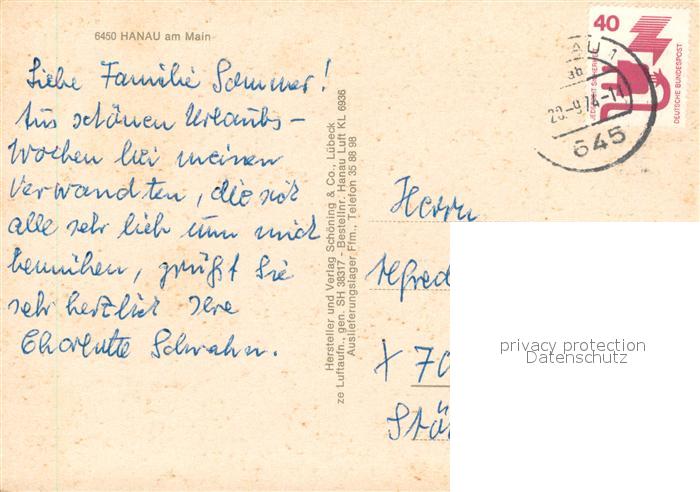 6450 HANAU am Main
Liebe Familie Sommer!
Aus schönen Urlaubs-
wochen bei meinen
Verwandten, die sich
alle sehr lieb um mich
bemühen, grüßt Sie
sehr herzlich Ihre
Charlotte Schwahn.
Hersteller und Verlag Schöning & Co., Lübeck
ze Luftaufn., gen. SH 38317 - Bestellnr. Hanau Luft KL 6936
Auslieferungslager Ffm., Telefon 35 88 98
40
JEDERZEIT SICHERHEIT
DEUTSCHE BUNDESPOST
AU 1
ab
20.-9.74-11
645
Herrn
Alfred
X 70
Stö
privacy protection
Datenschutz